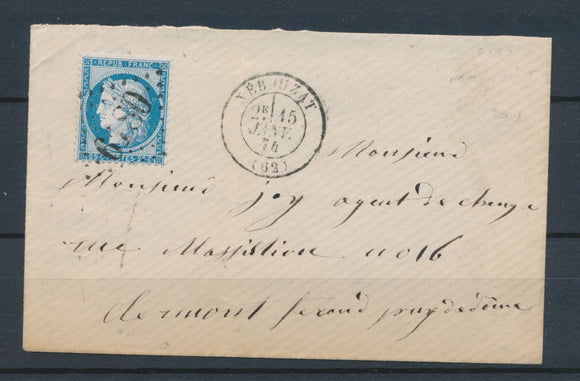 REPUB. FRANC.
6280
NÉBOUZAT
2E 15
JANV.
74
(62)
Monsieur
Monsieur joy agent de change
rue Massillion no 16
clermont ferand puy de dome